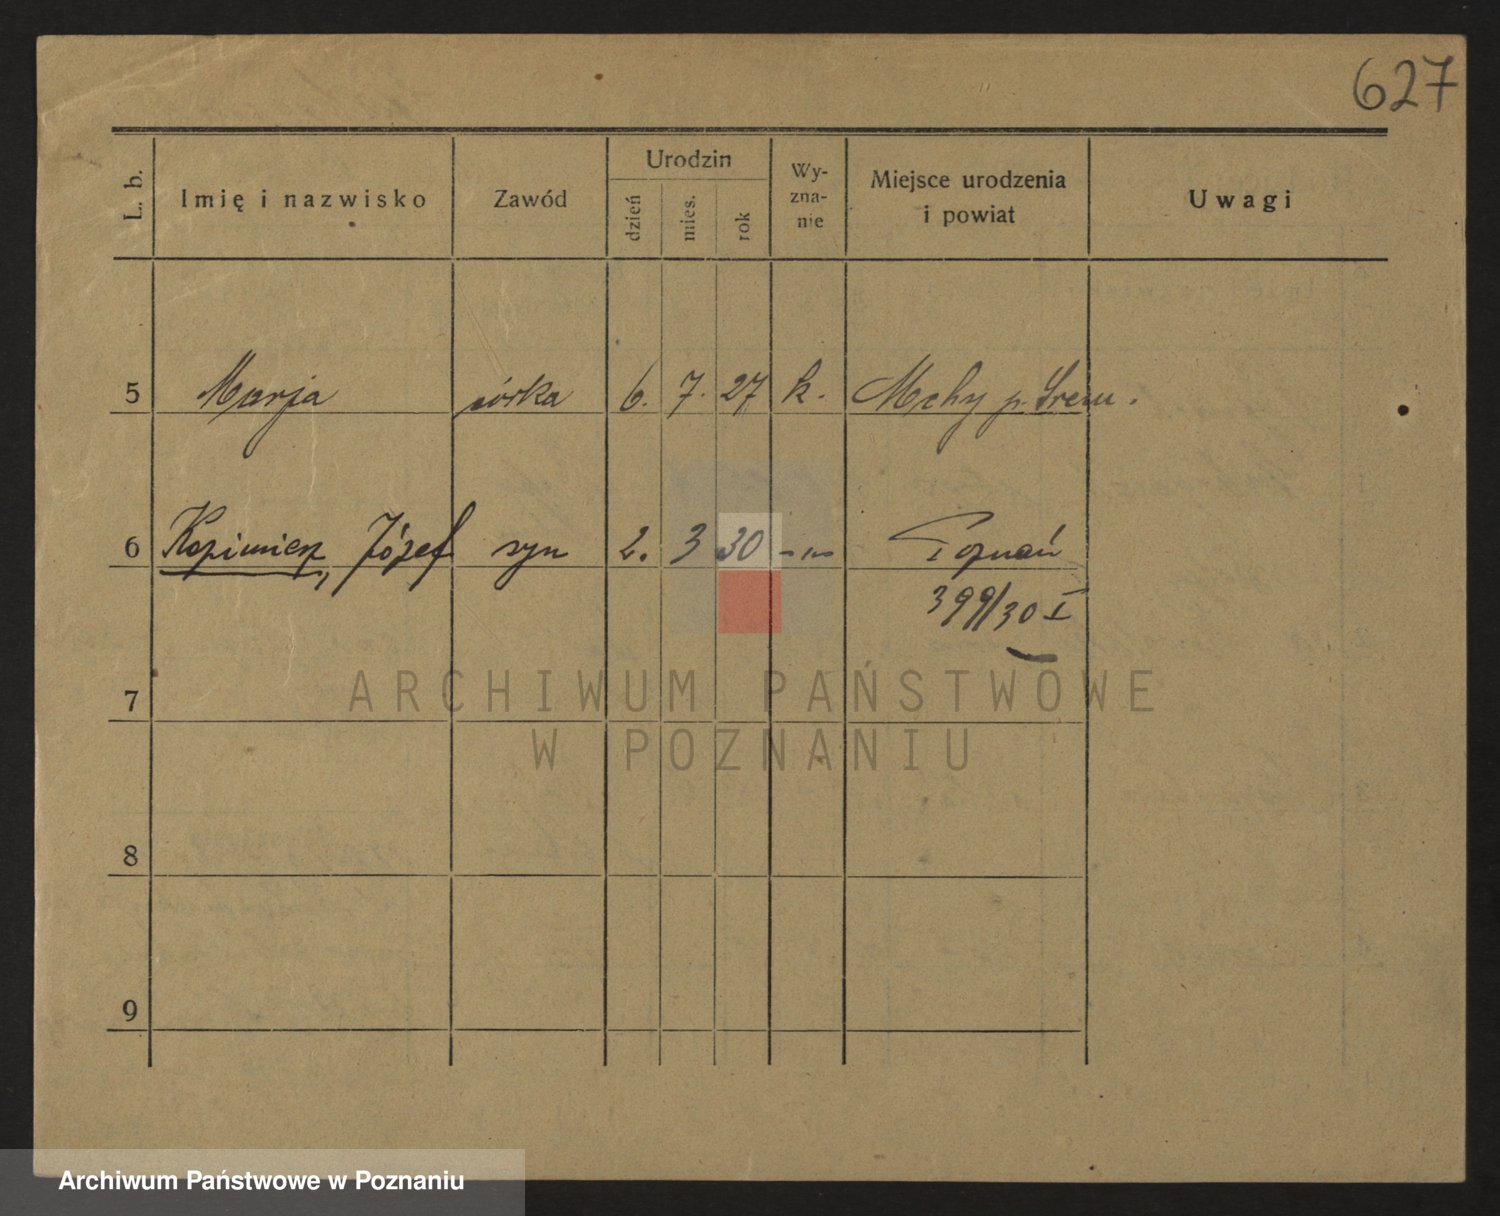 627
L. b.
Imię i nazwisko
Zawód
Urodzin
dzień
mies.
rok
Wy-
zna-
nie
Miejsce urodzenia
i powiat
Uwagi
5 Marja córka 6. 7. 27 k. Mchy p. Śrem.
6 Kazimierz, Józef syn 2. 3 30 -"- Poznań
399/30 I
7
8
9
ARCHIWUM PAŃSTWOWE
W POZNANIU
Archiwum Państwowe w Poznaniu